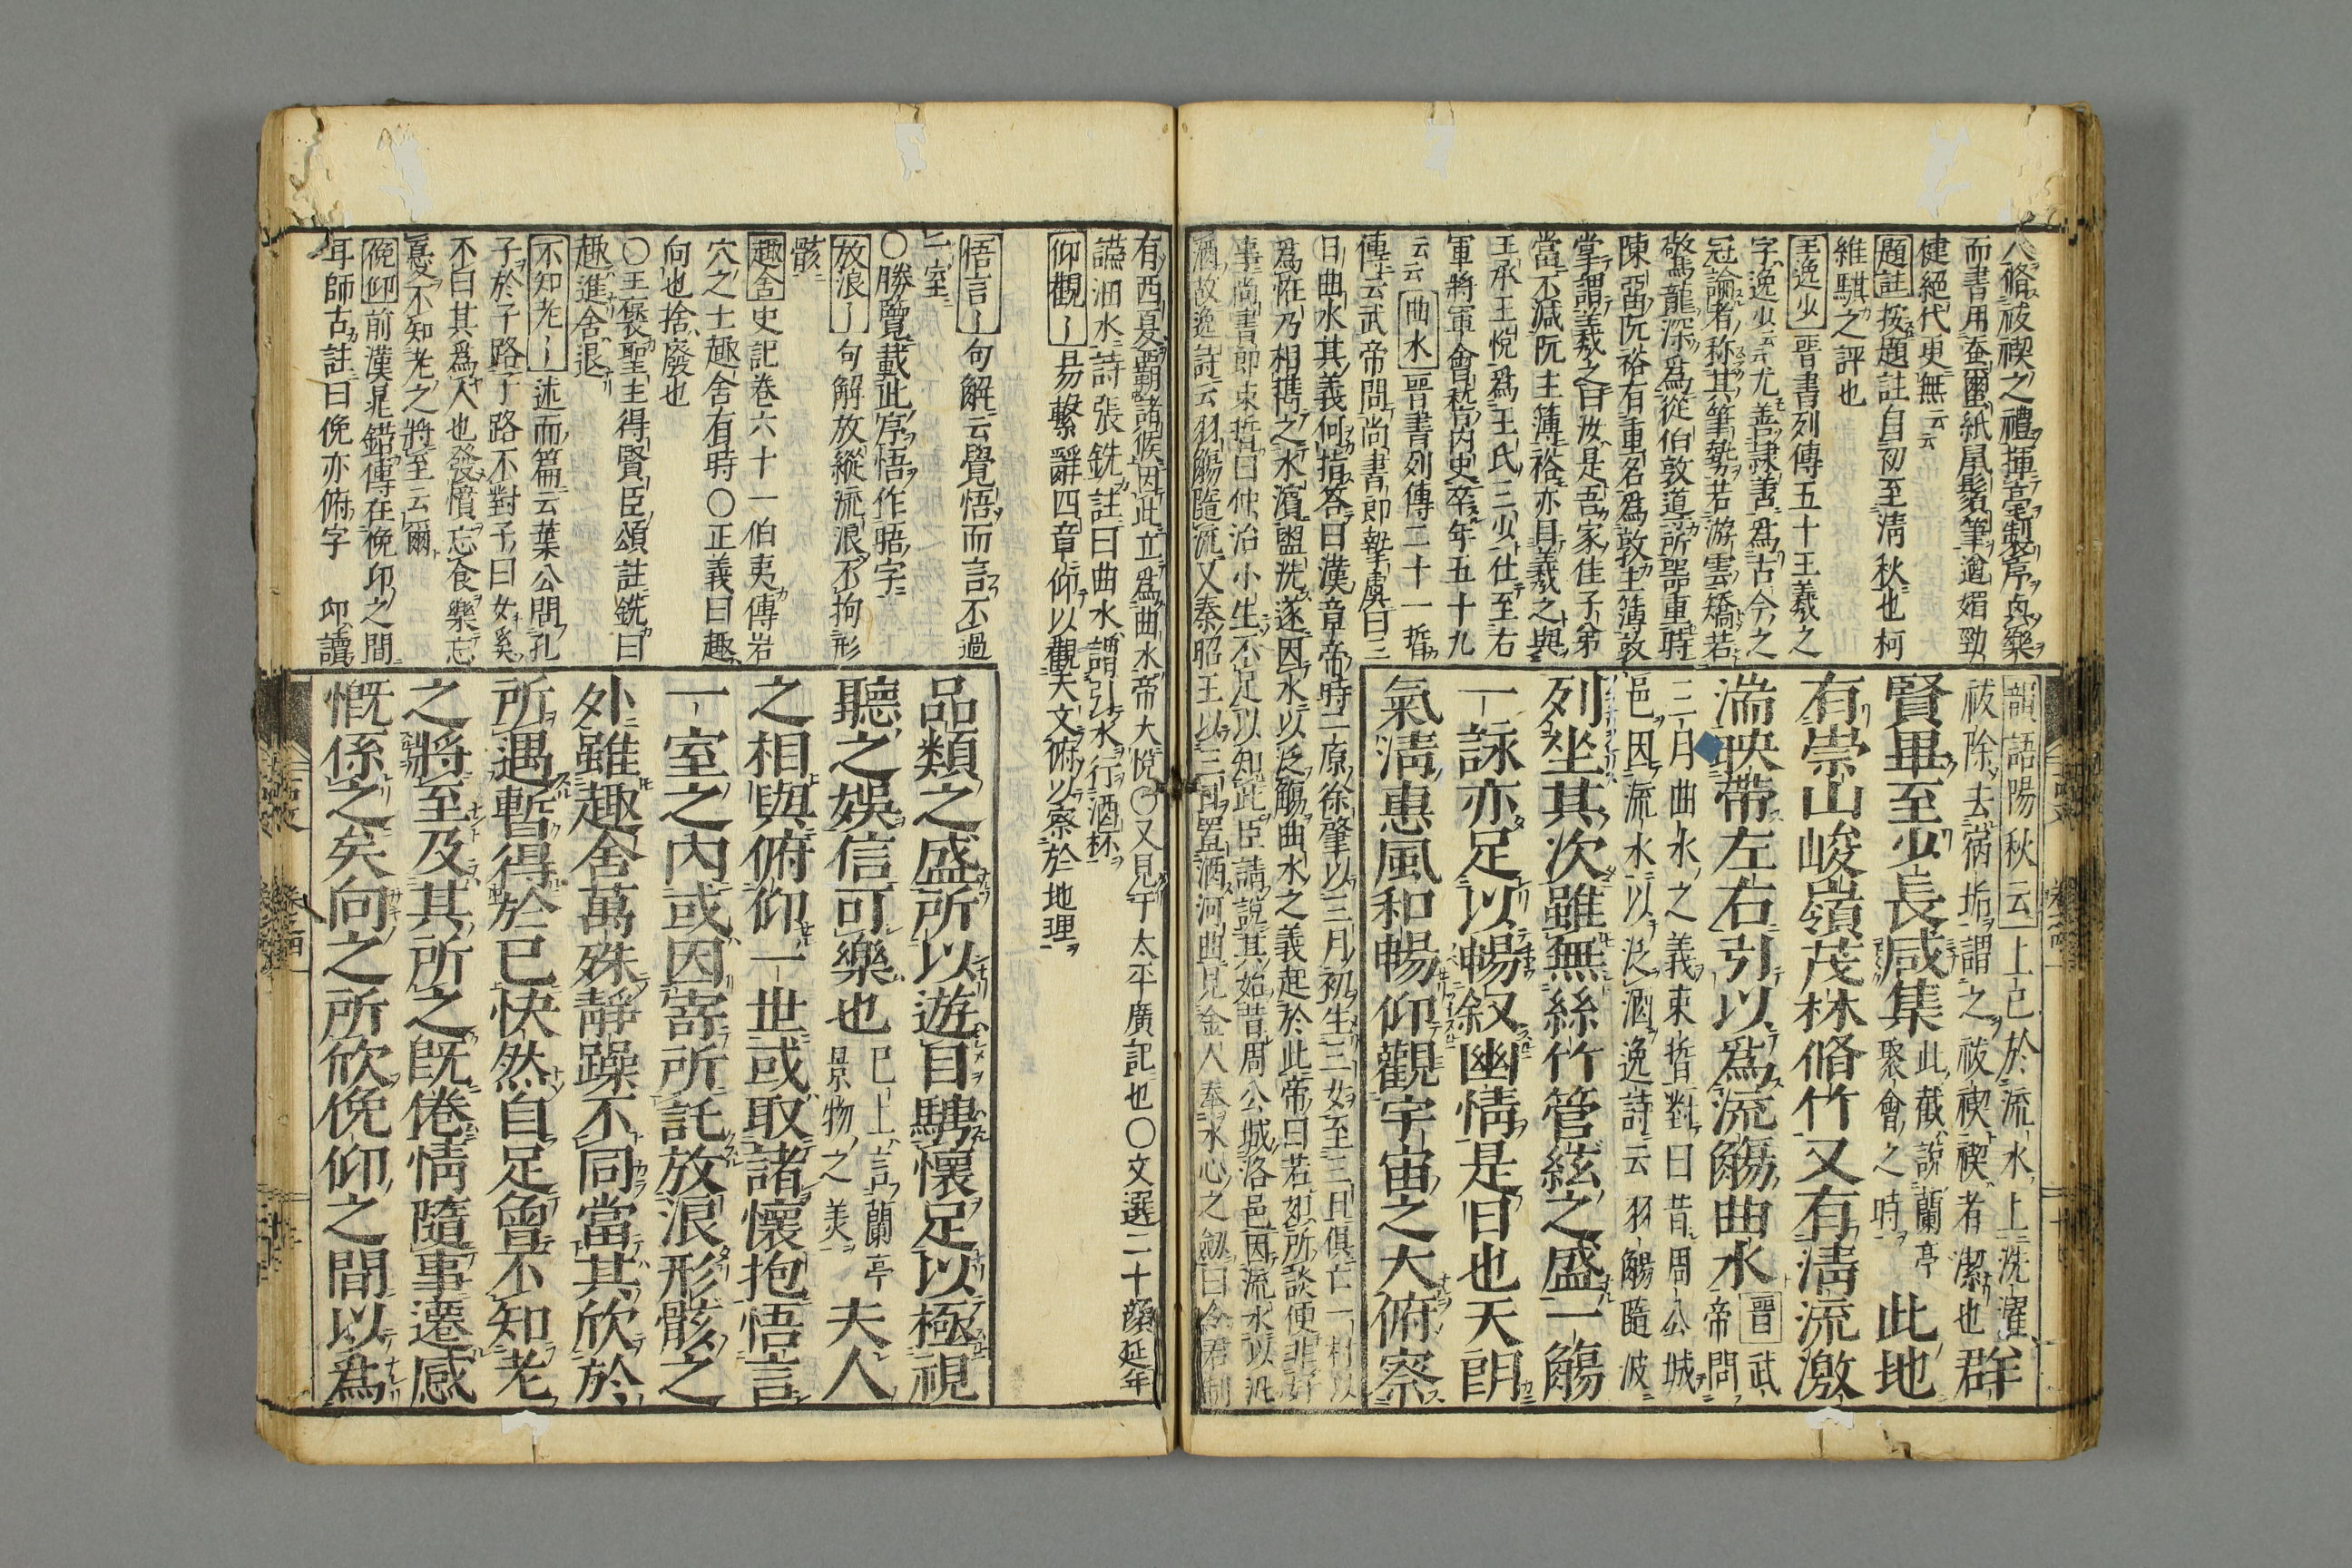 人脩祓禊之禮揮毫製序興樂
而書用蚕䌇紙鼠鬚筆遒媚勁
健絕代更無云云
題註按題註自初至淸秋也柯
維騏之評也
王逸少晉書列傳五十王羲之
字逸少云云尤善隷書爲古今之
冠論者称其筆勢若游雲矯若
驚龍深爲從伯敦道所器重時
陳畱阮裕有重名爲敦主簿敦
掌謂羲之曰汝是吾家佳子弟
當不減阮主簿裕亦目羲之與
王承王悅爲王氏三少仕至右
軍將軍會稽內史卒年五十九
云云曲水晉書列傳二十一晢
傳云武帝問尚書郎摯虞曰三
日曲水其義何指答曰漢章帝時二原徐肇以三月初生三女至三日俱亡一村以
爲恠乃相携之水濱盥洗遂因水以泛觴曲水之義起於此帝曰若如所談便非好
事尚書郎束晳曰仲治小生不足以知此臣請說其始昔周公城洛邑因流水以汎
酒故逸詩云羽觴隨流又秦昭王以三日置酒河曲見金人奉水心之劔曰令君制
韻語陽秋云上巳於流水上洗濯
祓除去宿垢謂之祓禊禊者潔也群
賢畢至少長咸集此截說蘭亭聚會之時此地
有崇山峻嶺茂林脩竹又有淸流激
湍映帶左右引以爲流觴曲水晉武帝問
三月曲水之義束晢對曰昔周公城
邑因流水以泛酒逸詩云羽觴隨波
列坐其次雖無絲竹管絃之盛一觴
一詠亦足以暢叙幽情是日也天朗
氣淸惠風和暢仰觀宇宙之大俯察
有西夏覇諸侯因此立爲曲水帝大悅○又見于太平廣記也○文選二十顏延年
讌曲水詩張銑註曰曲水謂引水行酒杯
仰觀〡易繫辭四章仰以觀天文俯以察於地理
悟言〡句解云覺悟而言不過
一室
○勝覽載此序悟作晤字
放浪〡句解放縱流浪不拘形
骸
趣舍史記卷六十一伯夷傳岩
穴之士趣舍有時○正義曰趣
向也捨廢也
○王褒聖主得賢臣頌註銑曰
趣進舍退
不知老〡述而篇云葉公問孔
子於子路子路不對子曰女奚
不曰其爲人也發憤忘食樂忘
憂不知老之將至云爾
俛仰前漢晁錯傳在俛卬之間
耳師古註曰俛亦俯字 卬讀
品類之盛所以遊目騁懷足以極視
聽之娛信可樂也已上言蘭亭景物之美夫人
之相與俯仰一世或取諸懷抱悟言
一室之內或因寄所託放浪形骸之
外雖趣舍萬殊靜躁不同當其欣於
所遇暫得於已快然自足曾不知老
之將至及其所之旣倦情隨事遷感
慨係之矣向之所欣俛仰之間以爲